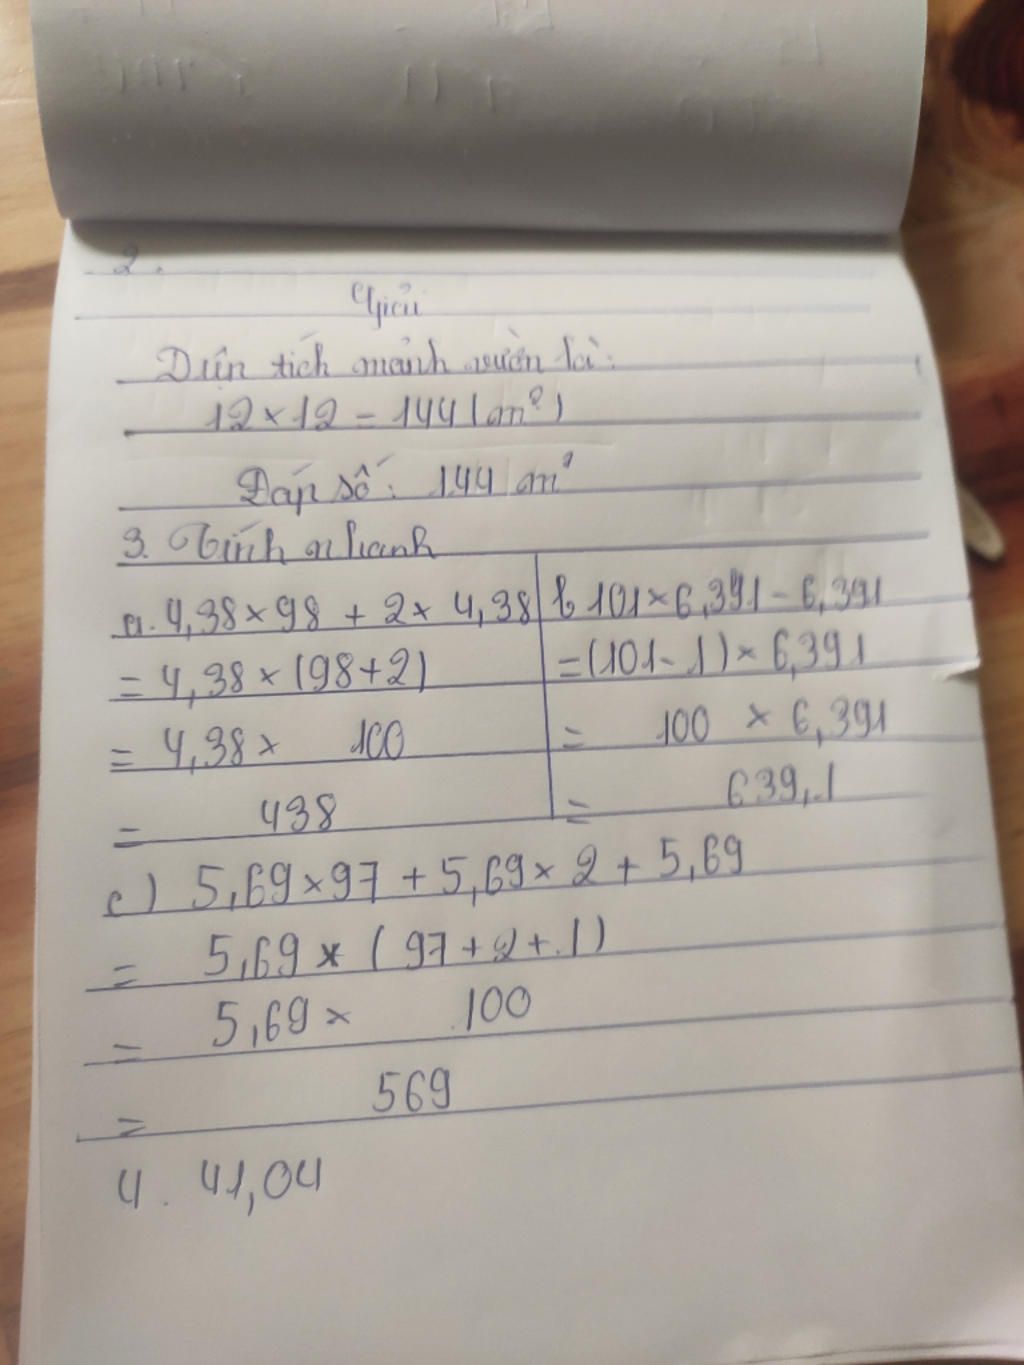 2.
Giải
Diện tích mảnh vườn là:
12 × 12 = 144 (m²)
Đáp số: 144 m²
3. Tính nhanh
a. 4,38 × 98 + 2 × 4,38
= 4,38 × (98+2)
= 4,38 × 100
= 438
b 101 × 6,391 - 6,391
= (101 - 1) × 6,391
= 100 × 6,391
= 639,1
c) 5,69 × 97 + 5,69 × 2 + 5,69
= 5,69 × (97 + 2 + 1)
= 5,69 × 100
= 569
4. 41,04